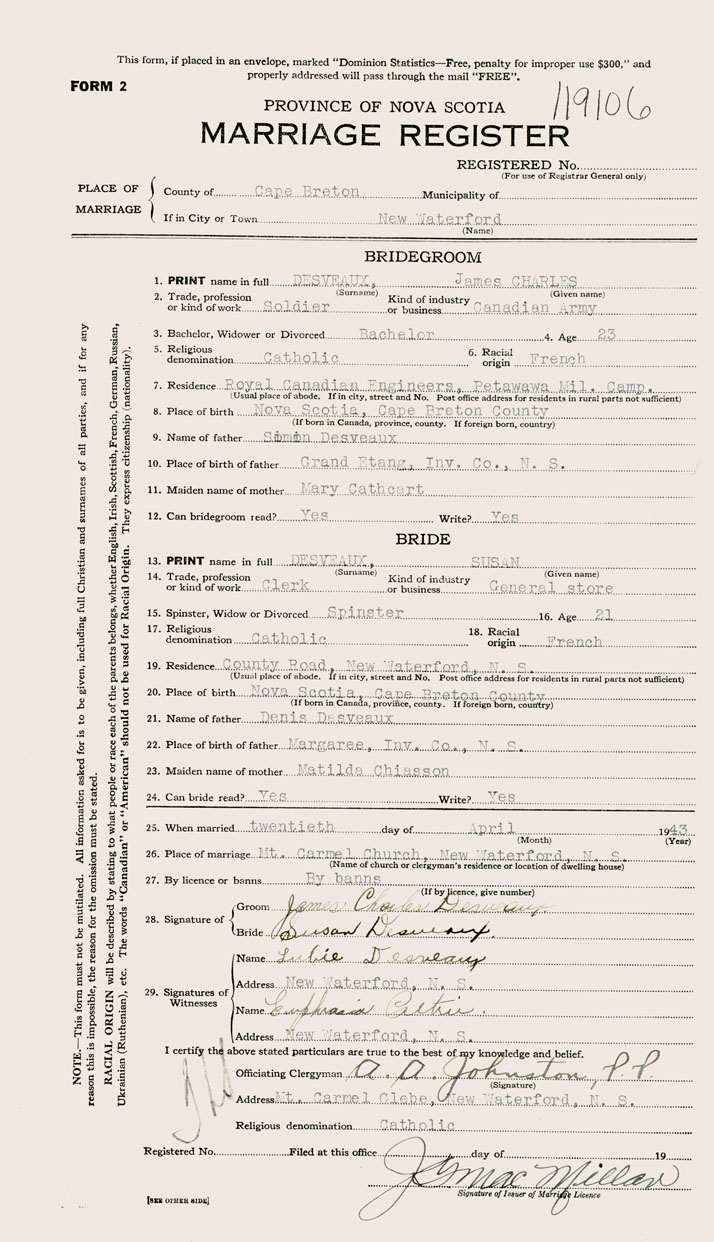 This form, if placed in an envelope, marked "Dominion Statistics—Free, penalty for improper use $300," and
properly addressed will pass through the mail "FREE".
FORM 2
119106
PROVINCE OF NOVA SCOTIA
MARRIAGE REGISTER
REGISTERED No.
(For use of Registrar General only)
PLACE OF MARRIAGE
County of Cape Breton Municipality of
If in City or Town New Waterford
(Name)
BRIDEGROOM
1. PRINT name in full DESVEAUX, James CHARLES
(Surname) (Given name)
2. Trade, profession or kind of work Soldier Kind of industry or business Canadian Army
3. Bachelor, Widower or Divorced Bachelor 4. Age 23
5. Religious denomination Catholic 6. Racial origin French
7. Residence Royal Canadian Engineers, Petawawa Mil. Camp.
(Usual place of abode. If in city, street and No. Post office address for residents in rural parts not sufficient)
8. Place of birth Nova Scotia, Cape Breton County
(If born in Canada, province, county. If foreign born, country)
9. Name of father Simon Desveaux
10. Place of birth of father Grand Etang, Inv. Co., N. S.
11. Maiden name of mother Mary Cathcart
12. Can bridegroom read? Yes Write? Yes
BRIDE
13. PRINT name in full DESVEAUX, SUSAN
(Surname) (Given name)
14. Trade, profession or kind of work Clerk Kind of industry or business General store
15. Spinster, Widow or Divorced Spinster 16. Age 21
17. Religious denomination Catholic 18. Racial origin French
19. Residence County Road, New Waterford, N. S.
(Usual place of abode. If in city, street and No. Post office address for residents in rural parts not sufficient)
20. Place of birth Nova Scotia, Cape Breton County
(If born in Canada, province, county. If foreign born, country)
21. Name of father Denis Desveaux
22. Place of birth of father Margaree, Inv. Co., N. S.
23. Maiden name of mother Matilda Chiasson
24. Can bride read? Yes Write? Yes
25. When married twentieth day of April 1943
(Month) (Year)
26. Place of marriage Mt. Carmel Church, New Waterford, N. S.
(Name of church or clergyman's residence or location of dwelling house)
27. By licence or banns By banns
(If by licence, give number)
28. Signature of
Groom James Charles Desveaux
Bride Susan Desveaux.
29. Signatures of Witnesses
Name Lubie Desveaux
Address New Waterford, N. S.
Name Euphrasia Pettrie.
Address New Waterford, N. S.
I certify the above stated particulars are true to the best of my knowledge and belief.
Officiating Clergyman A. A. Johnston, P.P.
(Signature)
Address Mt. Carmel Glebe, New Waterford, N. S.
Religious denomination Catholic
Registered No. Filed at this office day of 19
J G MacMillan
Signature of Issuer of Marriage Licence
[SEE OTHER SIDE]
NOTE.—This form must not be mutilated. All information asked for is to be given, including full Christian and surnames of all parties, and if for any
reason this is impossible, the reason for the omission must be stated.
RACIAL ORIGIN will be described by stating to what people or race each of the parents belongs, whether English, Irish, Scottish, French, German, Russian,
Ukrainian (Ruthenian), etc. The words "Canadian" or "American" should not be used for Racial Origin. They express citizenship (nationality).